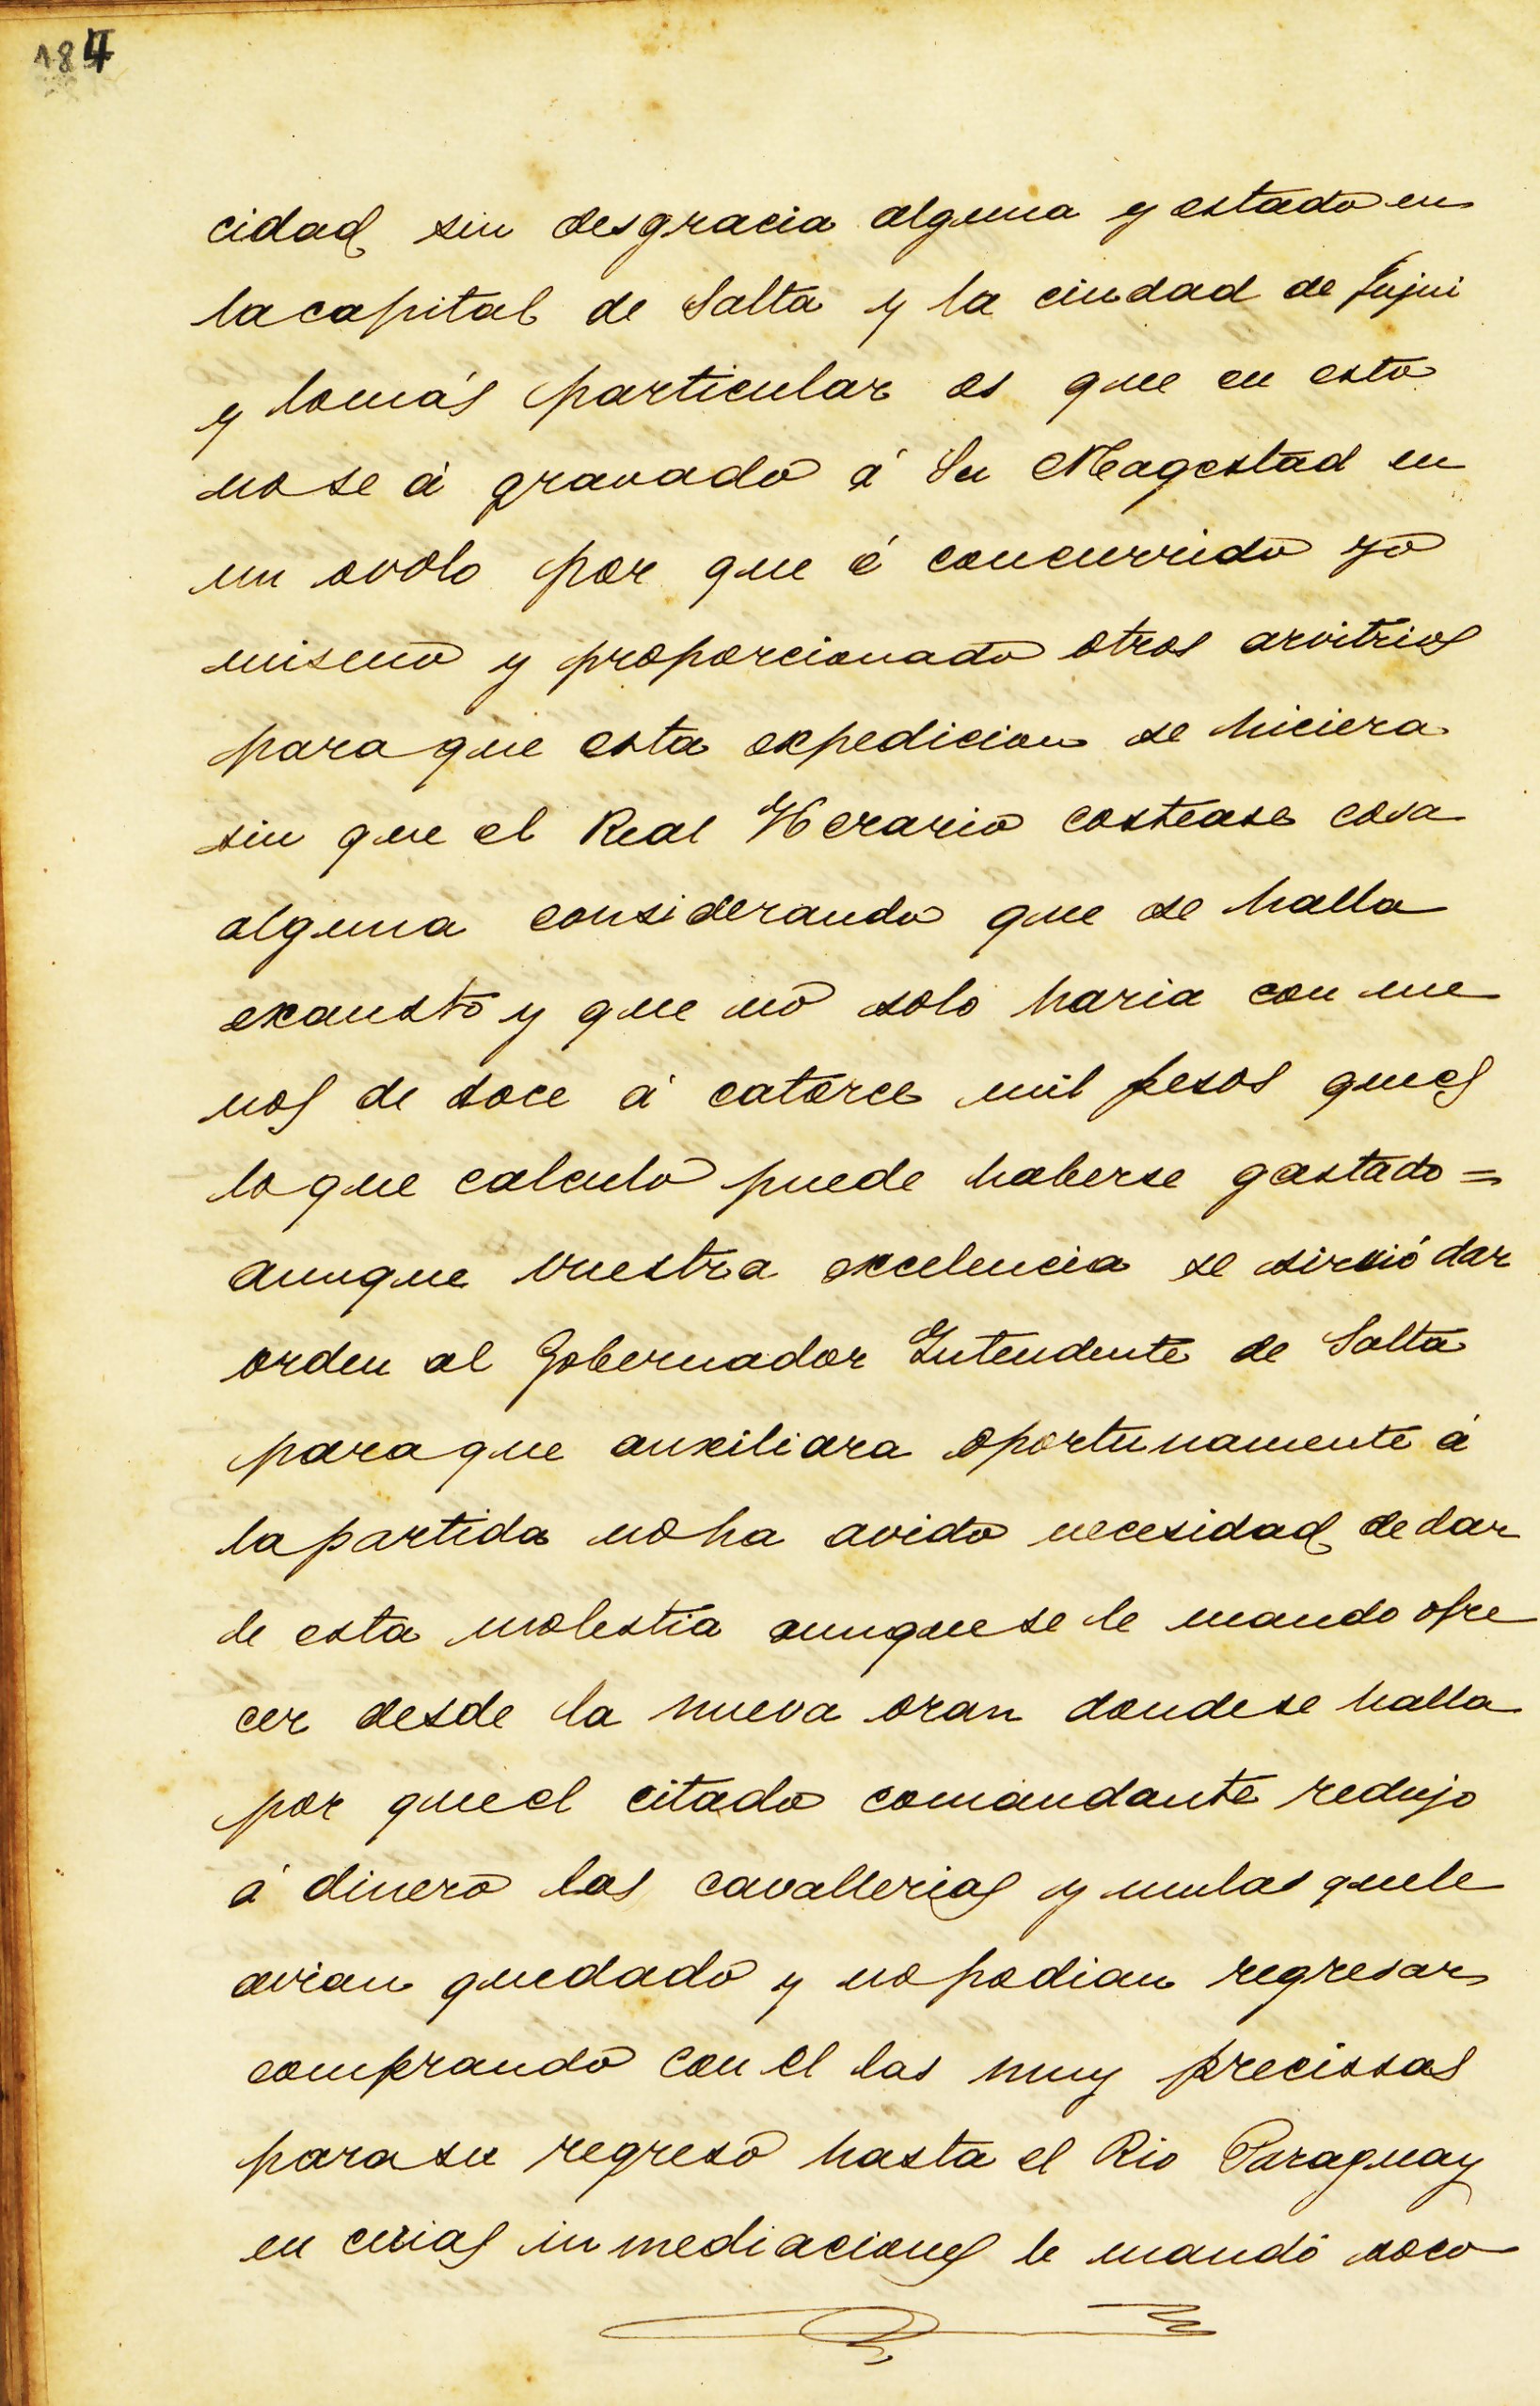 184
cidad sin desgracia alguna y estado en
la capital de Salta y la ciudad de Jujui
y lomás particular es que en esto
no se á gravado á Su Magestad en
un ovolo por que é concurrido yo
mismo y proporcionado otros arvitrios
para que esta expedicion se hiciera
sin que el Real Herario costease cosa
alguna considerando que se halla
exausto y que no solo haria con me
nos de doce á catorce mil pesos ques
lo que calculo puede haberse gastado =
aunque vuestra excelencia se sirvió dar
orden al Gobernador Intendente de Salta
para que auxiliara oportunamente á
la partida no ha avido necesidad de dar
le esta molestia aunque se le mando ofre
cer desde la nueva oran donde se halla
por que el citado comandante redujo
á dinero las cavallerias y mulas que le
avian quedado y no podian regresar
comprando con el las muy precissas
para su regreso hasta el Rio Paraguay
en cuias inmediaciones le mandó soco